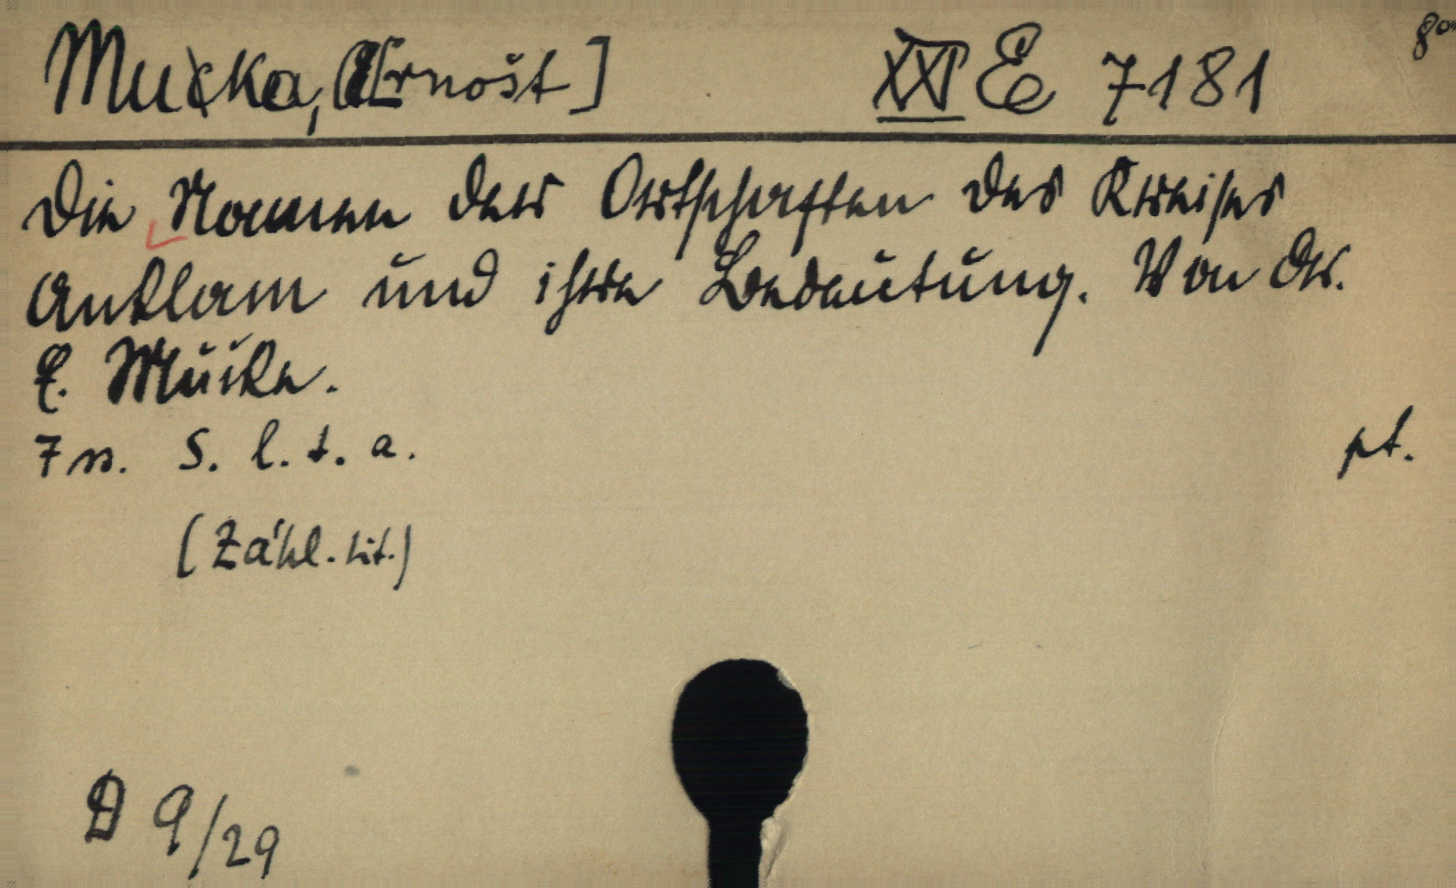 Mucka, E[rnošt] XXI E 7181 8°
Die Namen der Ortschaften des Kreises
Anklam und ihre Bedeutung. Von Dr.
E. Mucke.
7 ss. S. l. t. a. pt.
(Zähl. tit.)
D 9/29